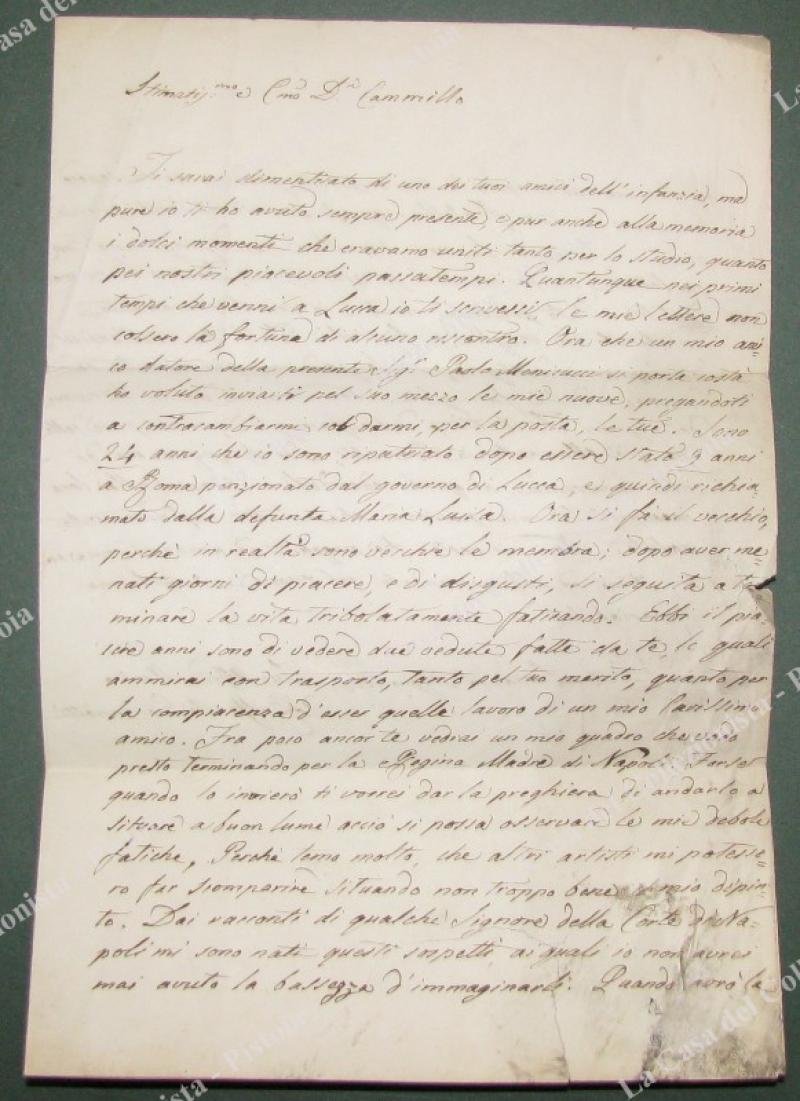 Stimatis.mo e C.mo D.n Cammillo
Ti sarai dimenticato di uno dei tuoi amici dell'infanzia, ma
pure io ti ho avuto sempre presente, e pur anche alla memoria
i dolci momenti che eravamo uniti tanto per lo studio, quanto
pei nostri piacevoli passatempi. Quantunque nei primi
tempi che venni a Lucca io ti scrivessi, le mie lettere non
colsero la fortuna di alcuno riscontro. Ora che un mio ami=
co datore della presente Sig.r Paolo Menicucci si porta costà
ho voluto inviarti pel suo mezzo le mie nuove, pregandoti
a contracambiarmi col darmi, per la posta, le tue. Sono
24 anni che io sono ripatriato dopo essere stato 9 anni
a Roma penzionato dal governo di Lucca, e quindi richia=
mato dalla defunta Maria Luisa. Ora si fà il vecchio,
perchè in realtà sono vecchie le membra; dopo aver me=
nati giorni di piacere, e di disgusti, si seguita a ter
minare la vita tribolatamente faticando. Ebbi il pia=
cere anni sono di vedere due vedute fatte da te, le quali
ammirai con trasporto, tanto pel tuo merito, quanto per
la compiacenza d'esser quelle lavoro di un mio carissimo
amico. Fra poco ancor te vedrai un mio quadro che vado
presto terminando per la Regina Madre di Napoli. Forse
quando lo invierò ti vorrei dar la preghiera di andarlo a
situare a buon lume acciò si possa osservare le mie debole
fatiche, Perchè temo molto, che altri artisti mi potesse=
ro far scomparire situando non troppo bene il mio dipin=
to. Dai racconti di qualche Signore della Corte di Na=
poli mi sono nati questi sospetti, ai quali io non avrei
mai avuto la bassezza d'immaginarli. Quando avrò la
La Casa del Collezionista - Pistoia